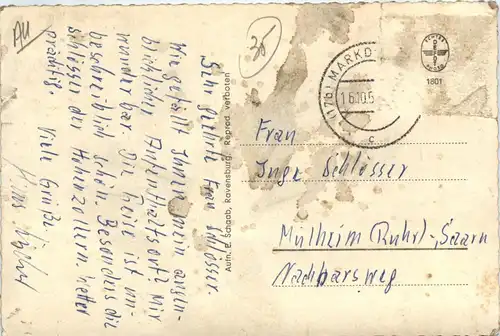 AU
35
Sehr geehrte Frau Schlösser.
Wie gefällt Ihnen mein augen-
blicklicher Aufenthaltsort? Mir
wunderbar. Die Reise ist un-
beschreiblich schön. Besonders die
Schlösser der Hohenzollern.
prächtig.
Viele Grüße
Hans
Aufn. E. Schaab, Ravensburg. Reprod. verboten
(17b) MARKD
16.10.5
c
1801
Frau
Inge Schlösser
Mülheim (Ruhr)-Saarn
Nachbarsweg